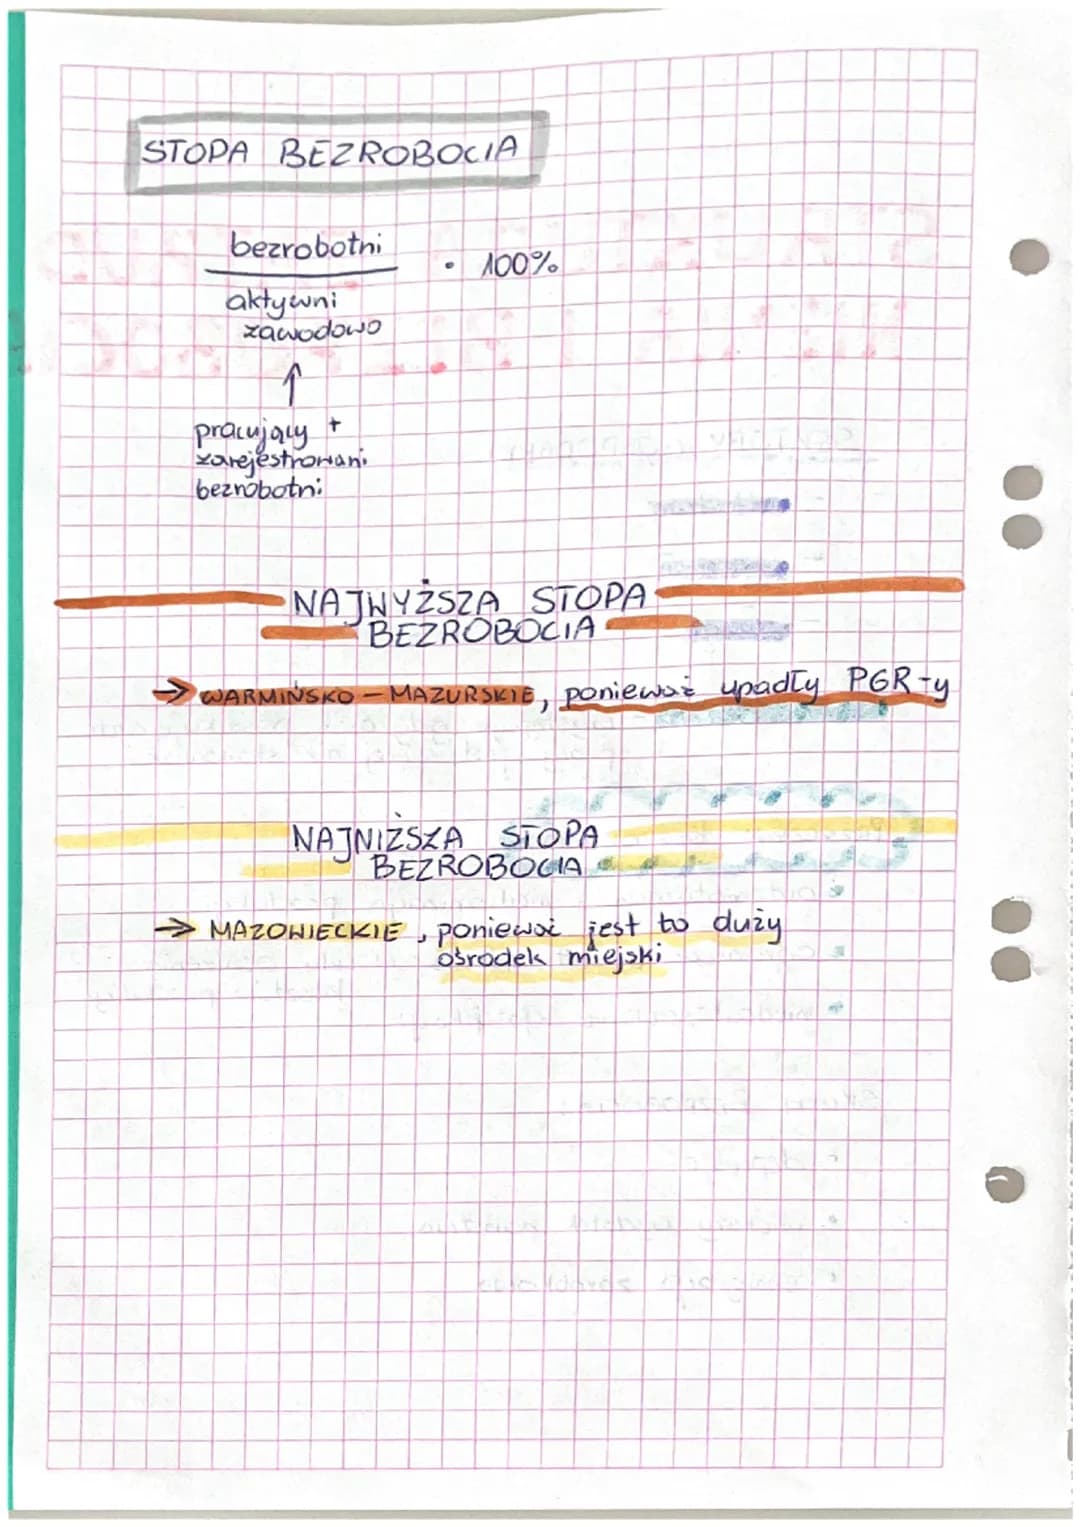 STOPA BEZROBOCIA
bezrobotni
aktywni
zawodowo
· 100%
↑
pracujący +
zarejestrowani
bezrobotni
NAJWYŻSZA STOPA
BEZROBOCIA
→ WARMIŃSKO – MAZURSKIE, ponieważ upadły PGR-y
NAJNIŻSZA STOPA
BEZROBOCIA
→ MAZOWIECKIE, ponieważ jest to duży
ośrodek miejski